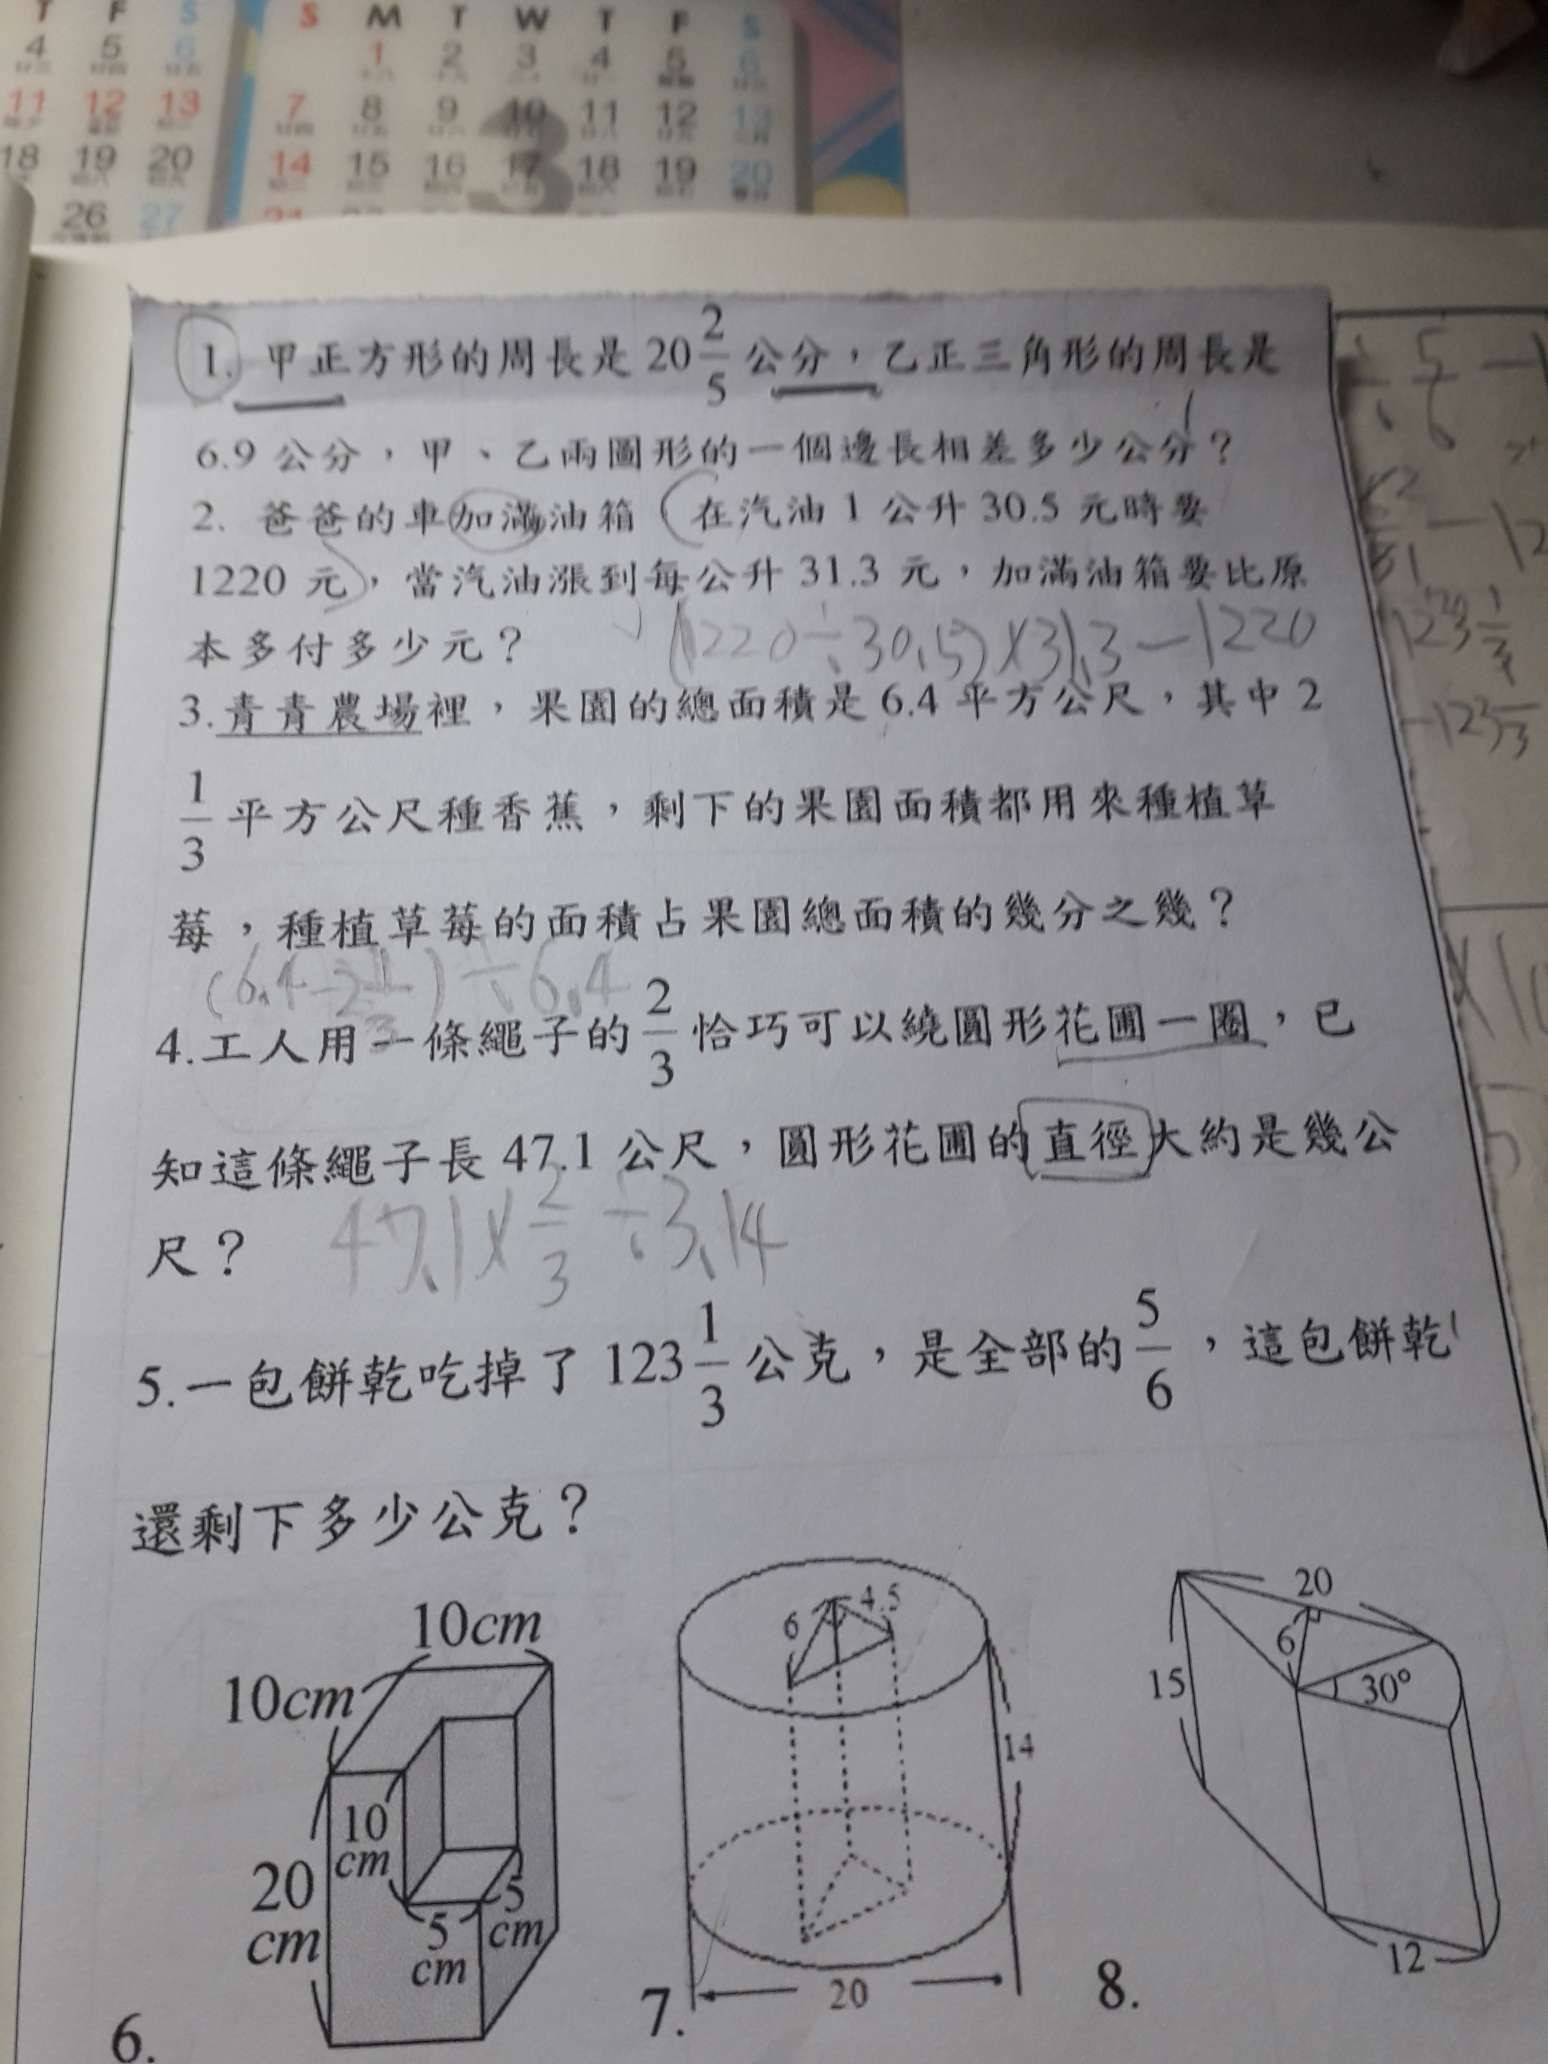 T F S
S M T W T F S
4 5 6
1 2 3 4 5 6
11 12 13
7 8 9 10 11 12 13
3
18 19 20
14 15 16 17 18 19 20
26 27
1. 甲正方形的周長是 20 2/5 公分，乙正三角形的周長是
6.9 公分，甲、乙兩圖形的一個邊長相差多少公分？
2. 爸爸的車加滿油箱（在汽油 1 公升 30.5 元時要
1220 元），當汽油漲到每公升 31.3 元，加滿油箱要比原
本多付多少元？
(1220÷30.5)×31.3－1220
3.青青農場裡，果園的總面積是 6.4 平方公尺，其中 2
1/3 平方公尺種香蕉，剩下的果園面積都用來種植草
莓，種植草莓的面積占果園總面積的幾分之幾？
(6.4－2 1/3)÷6.4
4.工人用一條繩子的 2/3 恰巧可以繞圓形花圃一圈，已
知這條繩子長 47.1 公尺，圓形花圃的直徑大約是幾公
尺？
47.1×2/3÷3.14
5.一包餅乾吃掉了 123 1/3 公克，是全部的 5/6，這包餅乾
還剩下多少公克？
123 1/3
10cm
10cm
10 cm
20 cm
5 cm
5 cm
6.
6 4.5
14
20
7.
20
6
15
30°
12
8.